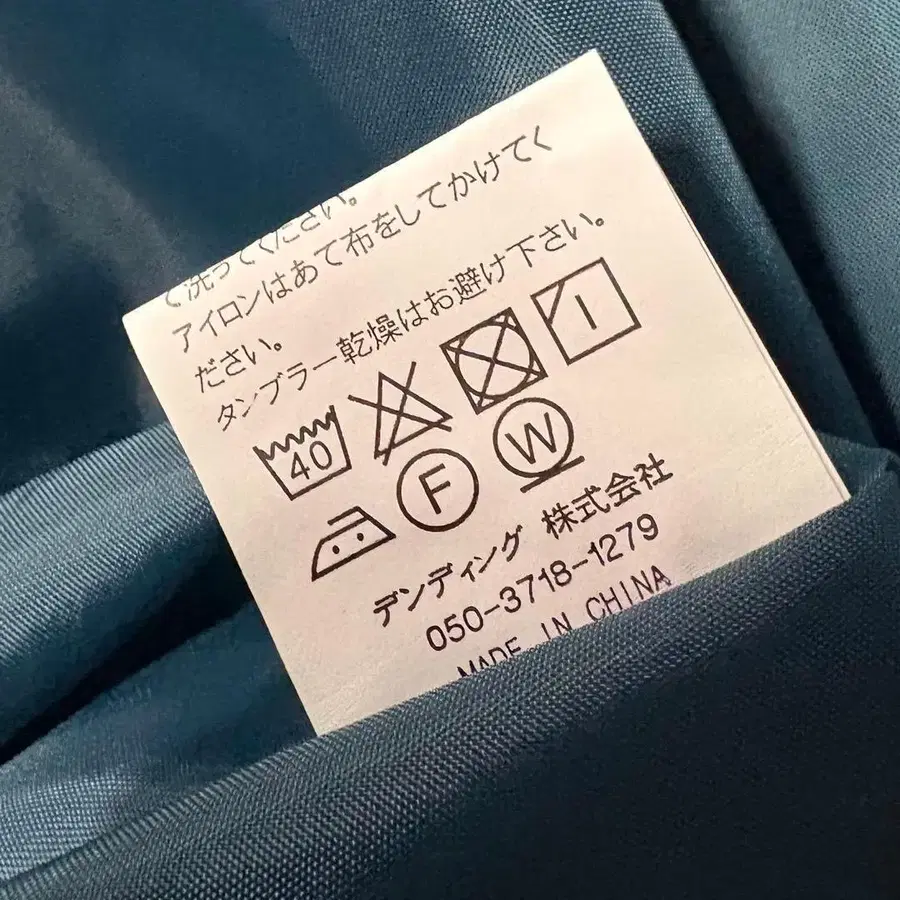 て洗ってください。
アイロンはあて布をしてかけてく
ださい。
タンブラー乾燥はお避け下さい。
40
F W
デンディング 株式会社
050-3718-1279
MADE IN CHINA